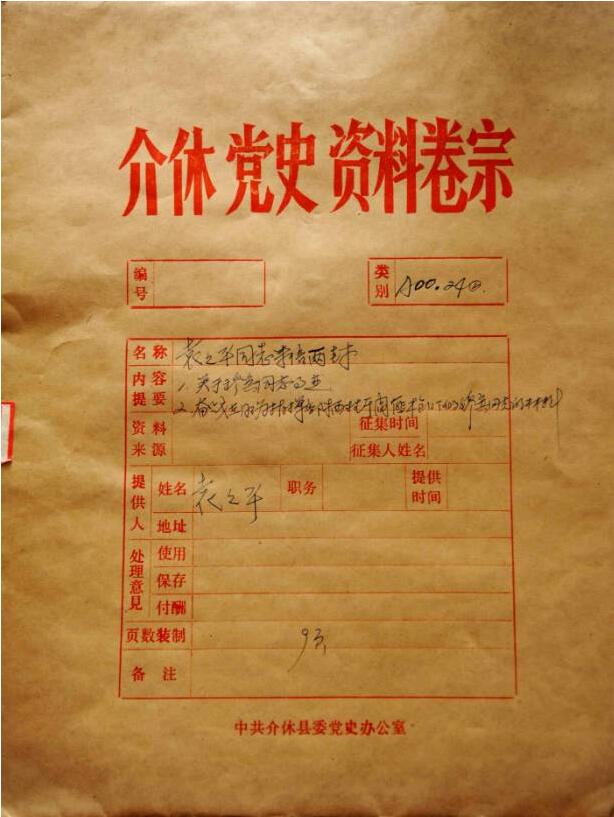 介休党史资料卷宗
编号
类别 A00.24②
名称 袁之平同志来信两封
内容提要 1. 关于 同志
2.
资料来源 征集时间
征集人姓名
提供人 姓名 袁之平 职务 提供时间
地址
处理意见 使用
保存
付酬
页数装制 9页
备注
中共介休县委党史办公室